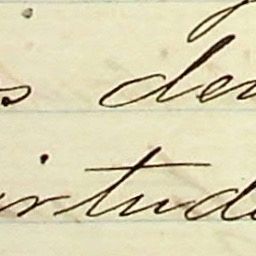 s den
irtude